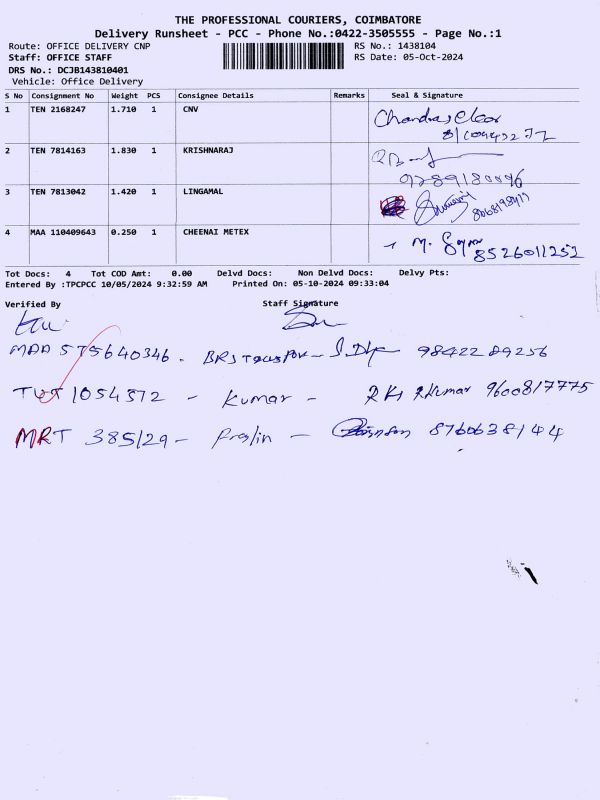 THE PROFESSIONAL COURIERS, COIMBATORE
Delivery Runsheet - PCC - Phone No.:0422-3505555 - Page No.:1
Route: OFFICE DELIVERY CNP RS No.: 1438104
Staff: OFFICE STAFF RS Date: 05-Oct-2024
DRS No.: DCJB143810401
Vehicle: Office Delivery
S No Consignment No Weight PCS Consignee Details Remarks Seal & Signature
1 TEN 2168247 1.710 1 CNV
2 TEN 7814163 1.830 1 KRISHNARAJ
9789180096
3 TEN 7813042 1.420 1 LINGAMAL
4 MAA 110409643 0.250 1 CHEENAI METEX M. 8526011252
Tot Docs: 4 Tot COD Amt: 0.00 Delvd Docs: Non Delvd Docs: Delvy Pts:
Entered By :TPCPCC 10/05/2024 9:32:59 AM Printed On: 05-10-2024 09:33:04
Verified By Staff Signature
575640346 - 9842289256
1054572 - Kumar - 9600817775
MRT 385129 - - 8760638144